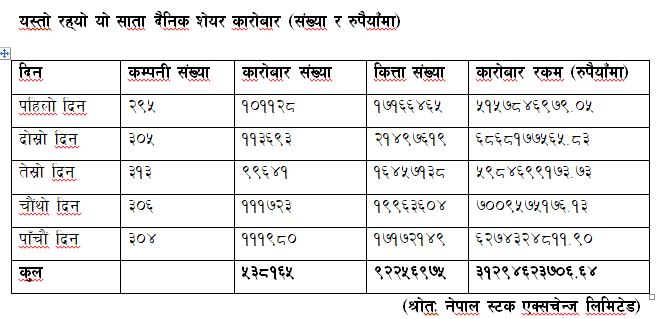 यस्तो रह्यो यो साता दैनिक शेयर कारोबार (संख्या र रुपैयाँमा)
दिन कम्पनी संख्या कारोबार संख्या कित्ता संख्या कारोबार रकम (रुपैयाँमा)
पहिलो दिन २९५ १०११२८ १७१६६४६५ ५१५७८४६९७९.०५
दोस्रो दिन ३०५ ११३६९३ २१४९७६१९ ६८६८१७७५६५.८३
तेस्रो दिन ३१३ ९९६४१ १६४५७१३८ ५९८४६९९१७३.७३
चौंथो दिन ३०६ १११७२३ १९९६३६०४ ७००९५७५१७६.१३
पाँचौं दिन ३०४ १११९८० १७१७२१४९ ६२७४३२४८११.९०
कुल ५३८१६५ ९२२५६९७५ ३१२९४६२३७०६.६४
(श्रोतः नेपाल स्टक एक्सचेन्ज लिमिटेड)